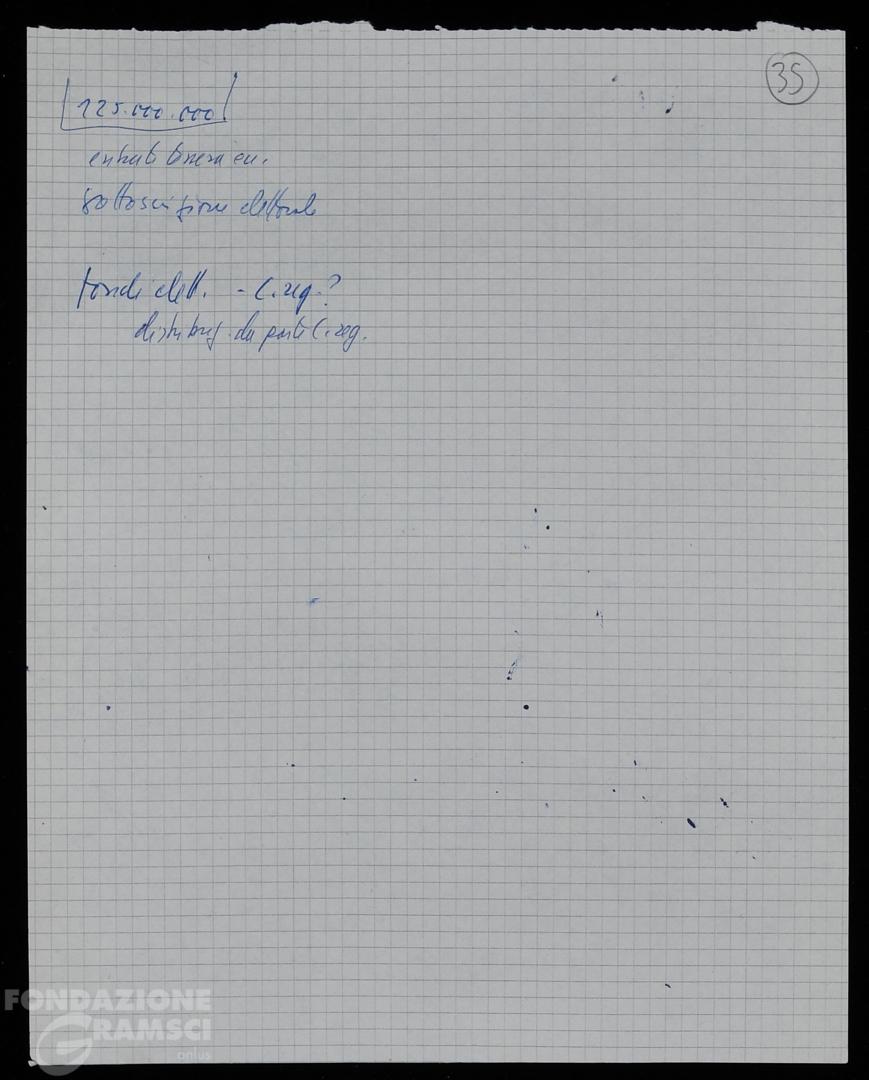 35
125.000.000
entrate tessera
sottoscrizione elettorale
fondi elett. - C. reg. ?
distribuz. da parte C. reg.
FONDAZIONE
GRAMSCI
onlus